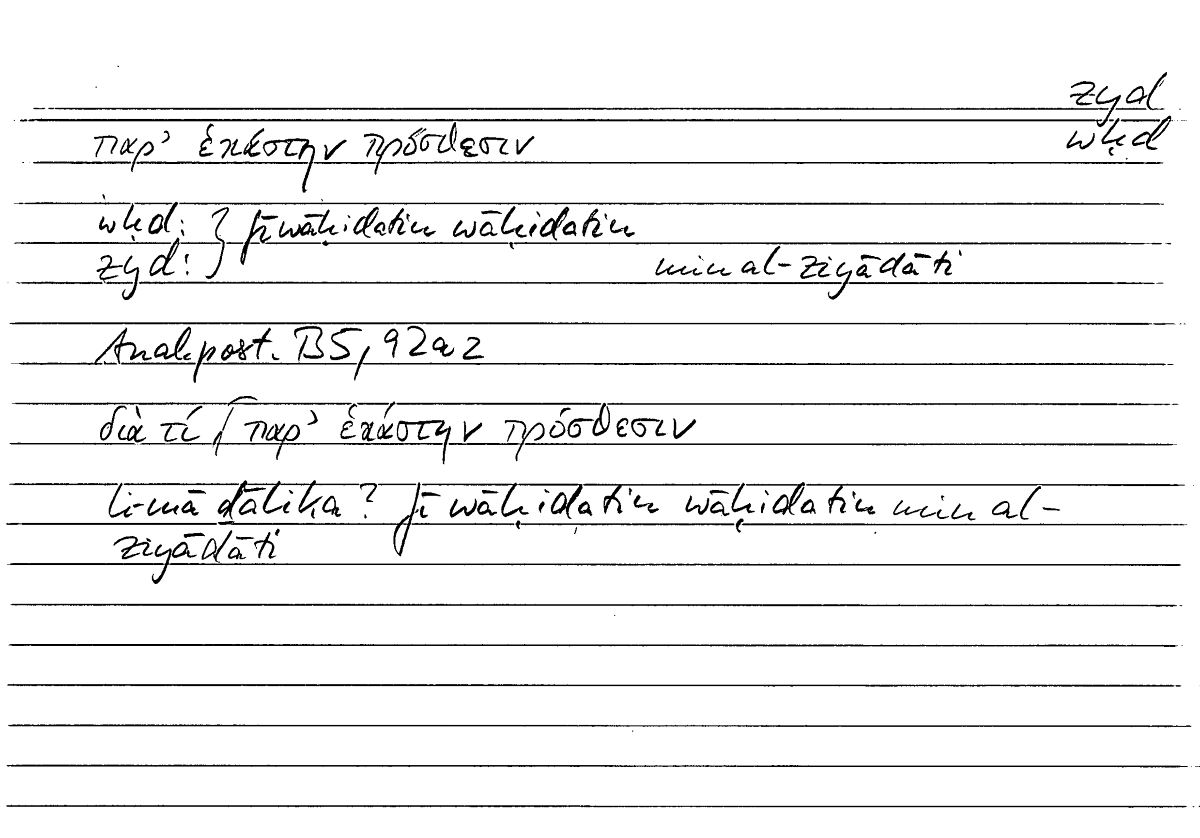 zyd
wḥd
παρ’ ἑκάστην πρόσθεσιν
wḥd: } fī wāḥidatin wāḥidatin
zyd: } min al-ziyādāti
Anal. post. B5, 92a2
διὰ τί, ⌈παρ’ ἑκάστην πρόσθεσιν
li-mā ḏālika? fī wāḥidatin wāḥidatin min al-
ziyādāti